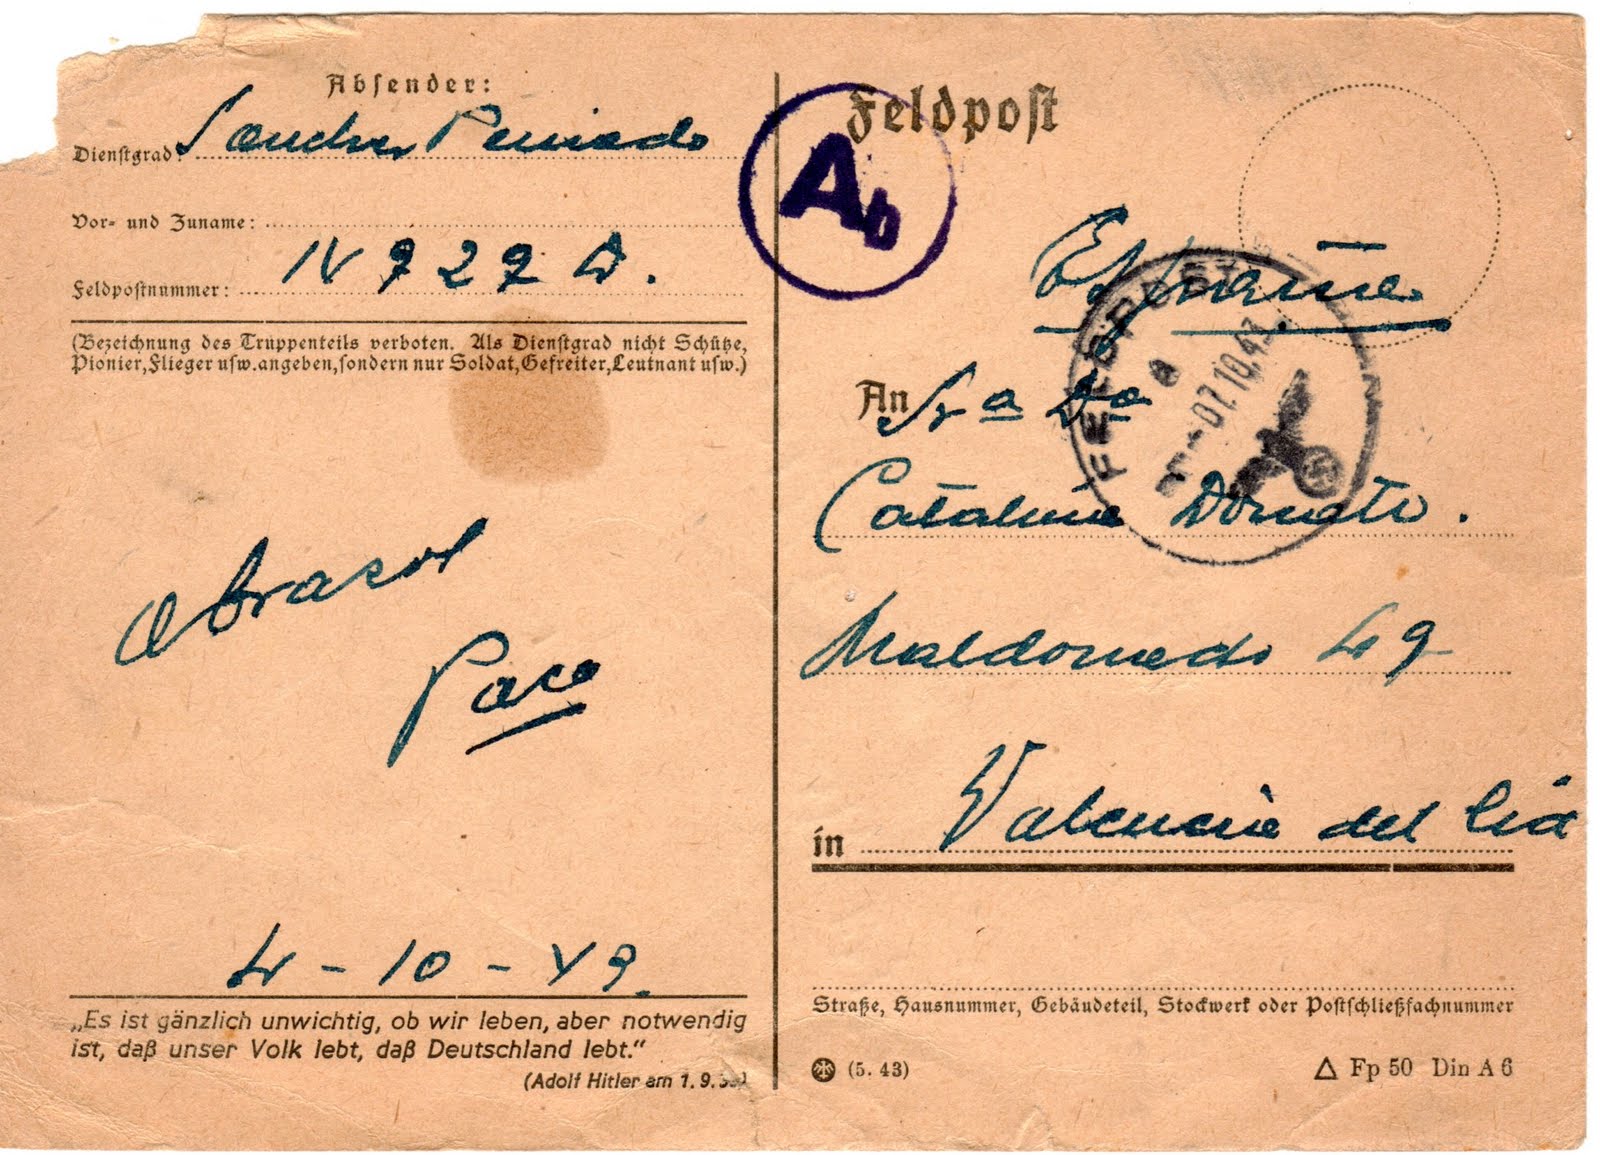 Absender:
Dienstgrad:
Vor- und Zuname:
Nº 7 2 7 2 D.
Feldpostnummer:
(Bezeichnung des Truppenteils verboten. Als Dienstgrad nicht Schütze,
Pionier, Flieger usw. angeben, sondern nur Soldat, Gefreiter, Leutnant usw.)
Abrazos
Paco
4 - 10 - 43.
„Es ist gänzlich unwichtig, ob wir leben, aber notwendig
ist, daß unser Volk lebt, daß Deutschland lebt.“
(Adolf Hitler am 1. 9.
Feldpost
Ab
FELDPOST
a
07.10.43
An Sra Da
Catalina Donato.
Maldonado 49
in Valencia del Cid
Straße, Hausnummer, Gebäudeteil, Stockwerk oder Postschließfachnummer
(5. 43)
Fp 50 Din A 6